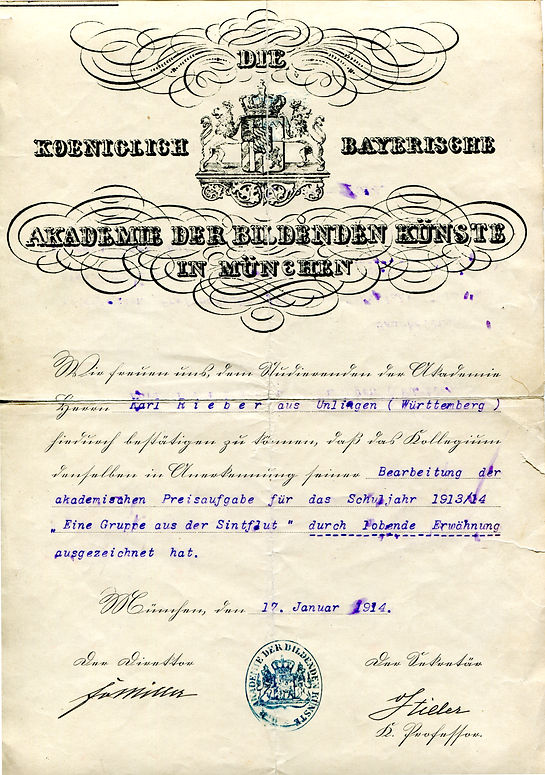 DIE
KOENIGLICH BAYERISCHE
AKADEMIE DER BILDENDEN KÜNSTE
IN MÜNCHEN
Wir freuen uns, dem Studierenden der Akademie
Herrn Karl Rieber aus Unlingen ( Württemberg )
hiedurch bestätigen zu können, daß das Kollegium
denselben in Anerkennung seiner Bearbeitung der
akademischen Preisaufgabe für das Schuljahr 1913/14
„ Eine Gruppe aus der Sintflut " durch lobende Erwähnung
ausgezeichnet hat.
München, den 17. Januar 1914.
Der Direktor Der Sekretär
AKADEMIE DER BILDENDEN KÜNSTE
K. Professor.